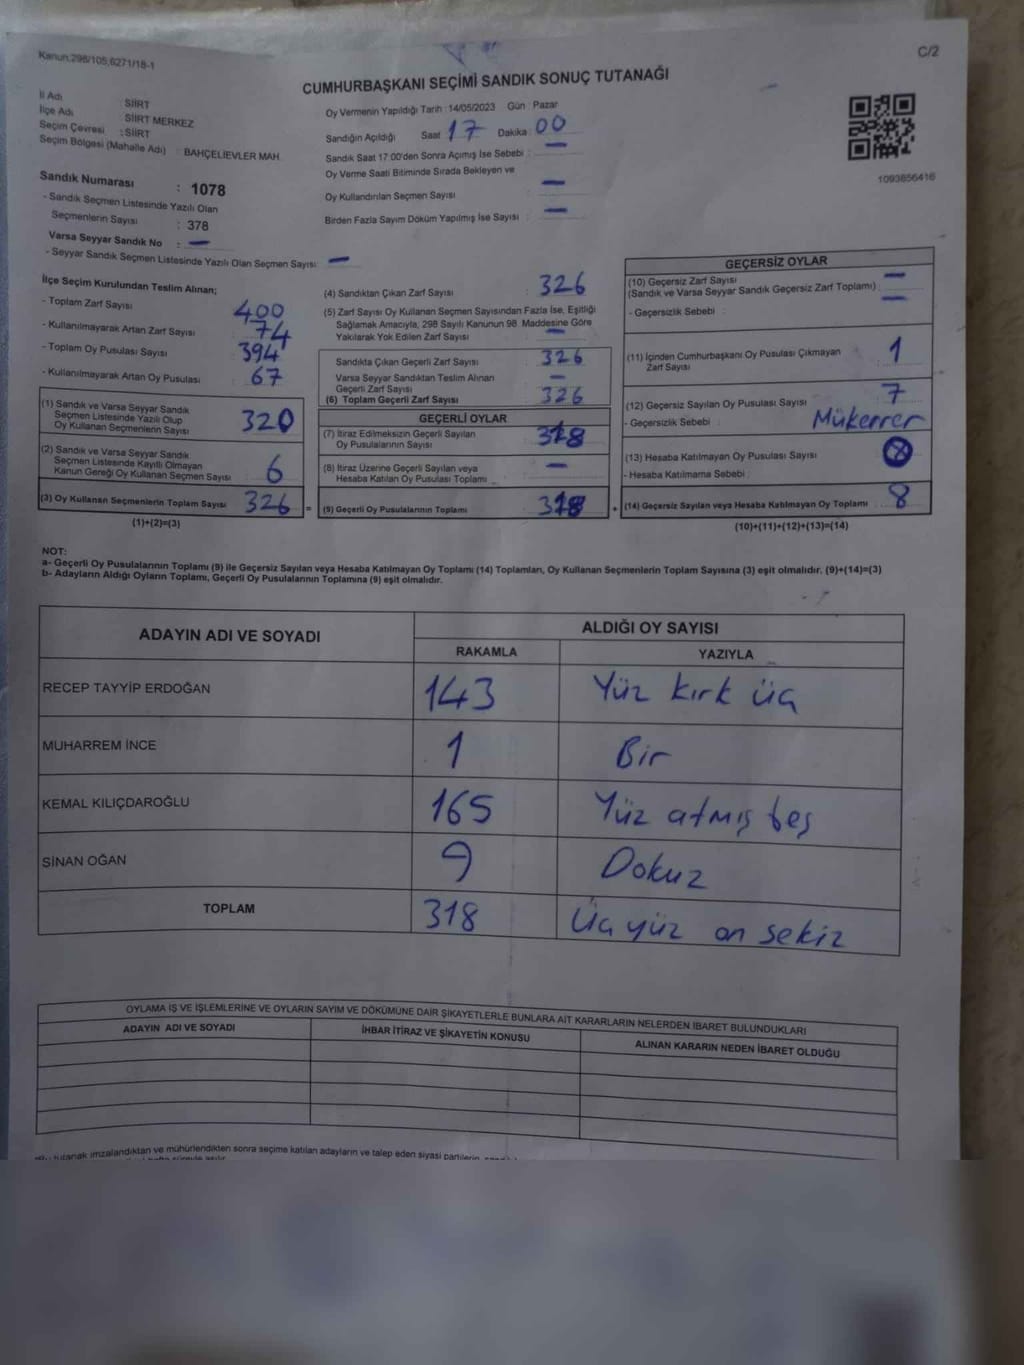 Kanun:298/105,6271/18-1
C/2
CUMHURBAŞKANI SEÇİMİ SANDIK SONUÇ TUTANAĞI
İl Adı : SİİRT
İlçe Adı : SİİRT MERKEZ
Seçim Çevresi : SİİRT
Seçim Bölgesi (Mahalle Adı) : BAHÇELİEVLER MAH.
Sandık Numarası : 1078
- Sandık Seçmen Listesinde Yazılı Olan
Seçmenlerin Sayısı : 378
Varsa Seyyar Sandık No : —
- Seyyar Sandık Seçmen Listesinde Yazılı Olan Seçmen Sayısı: —
Oy Vermenin Yapıldığı Tarih : 14/05/2023 Gün : Pazar
Sandığın Açıldığı Saat 17 Dakika : 00
Sandık Saat 17:00'den Sonra Açımış İse Sebebi : —
Oy Verme Saati Bitiminde Sırada Bekleyen ve
Oy Kullandırılan Seçmen Sayısı : —
Birden Fazla Sayım Döküm Yapılmış İse Sayısı : —
1093856416
İlçe Seçim Kurulundan Teslim Alınan;
- Toplam Zarf Sayısı : 400
- Kullanılmayarak Artan Zarf Sayısı : 74
- Toplam Oy Pusulası Sayısı : 394
- Kullanılmayarak Artan Oy Pusulası : 67
(1) Sandık ve Varsa Seyyar Sandık
Seçmen Listesinde Yazılı Olup
Oy Kullanan Seçmenlerin Sayısı : 320
(2) Sandık ve Varsa Seyyar Sandık
Seçmen Listesinde Kayıtlı Olmayan
Kanun Gereği Oy Kullanan Seçmen Sayısı : 6
(3) Oy Kullanan Seçmenlerin Toplam Sayısı : 326 =
(1)+(2)=(3)
(4) Sandıktan Çıkan Zarf Sayısı : 326
(5) Zarf Sayısı Oy Kullanan Seçmen Sayısından Fazla İse, Eşitliği
Sağlamak Amacıyla, 298 Sayılı Kanunun 98. Maddesine Göre
Yakılarak Yok Edilen Zarf Sayısı : —
Sandıkta Çıkan Geçerli Zarf Sayısı : 326
Varsa Seyyar Sandıktan Teslim Alınan
Geçerli Zarf Sayısı : —
(6) Toplam Geçerli Zarf Sayısı : 326
GEÇERLİ OYLAR
(7) İtiraz Edilmeksizin Geçerli Sayılan
Oy Pusulalarının Sayısı : 318
(8) İtiraz Üzerine Geçerli Sayılan veya
Hesaba Katılan Oy Pusulası Toplamı : —
(9) Geçerli Oy Pusulalarının Toplamı : 318 +
GEÇERSİZ OYLAR
(10) Geçersiz Zarf Sayısı : —
(Sandık ve Varsa Seyyar Sandık Geçersiz Zarf Toplamı) : —
- Geçersizlik Sebebi :
(11) İçinden Cumhurbaşkanı Oy Pusulası Çıkmayan
Zarf Sayısı : 1
(12) Geçersiz Sayılan Oy Pusulası Sayısı : 7
- Geçersizlik Sebebi : Mükerrer
(13) Hesaba Katılmayan Oy Pusulası Sayısı :
- Hesaba Katılmama Sebebi :
(14) Geçersiz Sayılan veya Hesaba Katılmayan Oy Toplamı : 8
(10)+(11)+(12)+(13)=(14)
NOT:
a- Geçerli Oy Pusulalarının Toplamı (9) ile Geçersiz Sayılan veya Hesaba Katılmayan Oy Toplamı (14) Toplamları, Oy Kullanan Seçmenlerin Toplam Sayısına (3) eşit olmalıdır. (9)+(14)=(3)
b- Adayların Aldığı Oyların Toplamı, Geçerli Oy Pusulalarının Toplamına (9) eşit olmalıdır.
ADAYIN ADI VE SOYADI ALDIĞI OY SAYISI
RAKAMLA YAZIYLA
RECEP TAYYİP ERDOĞAN 143 Yüz kırk üç
MUHARREM İNCE 1 Bir
KEMAL KILIÇDAROĞLU 165 Yüz atmış beş
SİNAN OĞAN 9 Dokuz
TOPLAM 318 Üç yüz on sekiz
OYLAMA İŞ VE İŞLEMLERİNE VE OYLARIN SAYIM VE DÖKÜMÜNE DAİR ŞİKAYETLERLE BUNLARA AİT KARARLARIN NELERDEN İBARET BULUNDUKLARI
ADAYIN ADI VE SOYADI İHBAR İTİRAZ VE ŞİKAYETİN KONUSU ALINAN KARARIN NEDEN İBARET OLDUĞU
tutanak imzalandıktan ve mühürlendikten sonra seçime katılan adayların ve talep eden siyasi partilerin